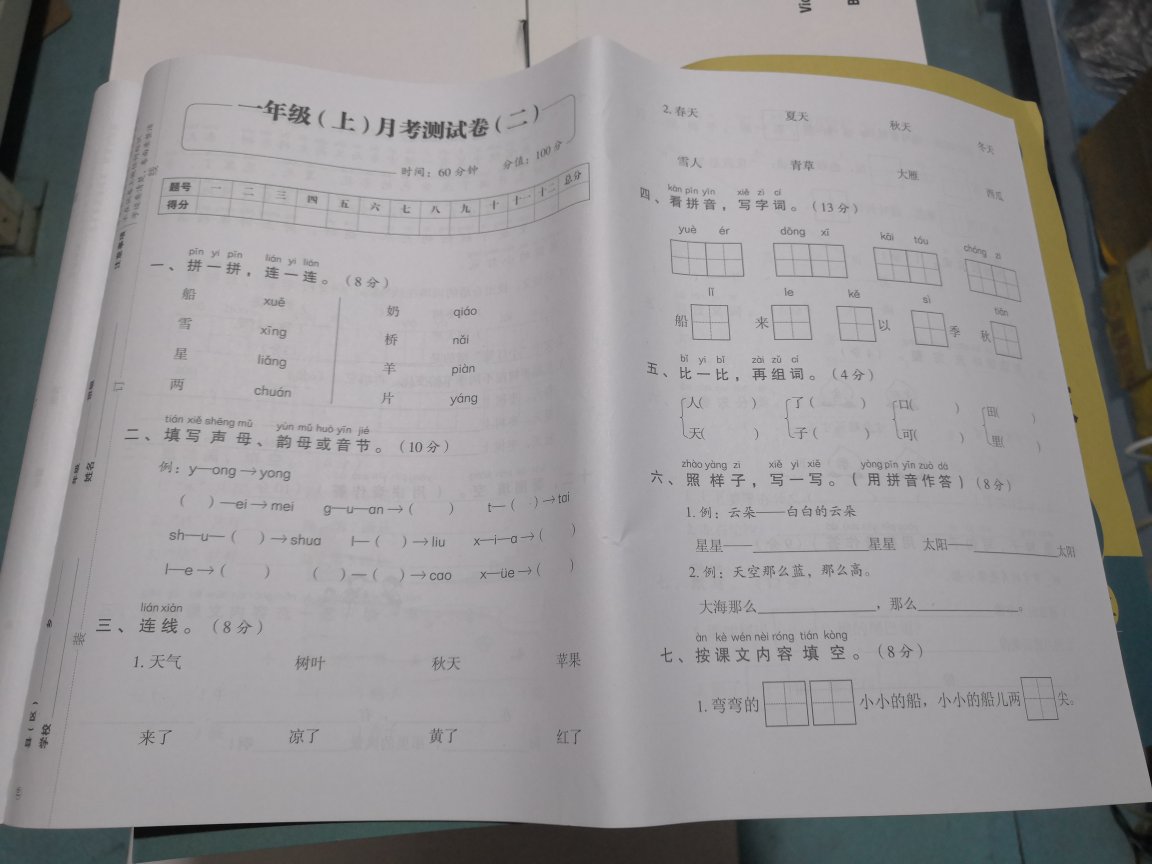 一年级(上)月考测试卷(二)
时间：60分钟 分值：100分
题号 一 二 三 四 五 六 七 八 九 十 十一 十二 总分
得分
pīn yi pīn lián yi lián
一、拼一拼，连一连。(8分)
船 xuě 奶 qiáo
雪 xīng 桥 nǎi
星 liǎng 羊 piàn
两 chuán 片 yáng
tián xiě shēng mǔ yùn mǔ huò yīn jié
二、填写声母、韵母或音节。(10分)
例：y—ong→yong
( )—ei→mei g—u—an→( ) t—( )→tai
sh—u—( )→shua l—( )→liu x—i—a→( )
l—e→( ) ( )—( )→cao x—üe→( )
lián xiàn
三、连线。(8分)
1.天气 树叶 秋天 苹果
来了 凉了 黄了 红了
2.春天 夏天 秋天 冬天
雪人 青草 大雁 西瓜
kàn pīn yīn xiě zì cí
四、看拼音，写字词。(13分)
yuè ér dōng xī kāi tóu chóng zi
lǐ le kě sì tiān
船 来 以 季 秋
bǐ yi bǐ zài zǔ cí
五、比一比，再组词。(4分)
人( ) 了( ) 口( ) 田( )
天( ) 子( ) 可( ) 里( )
zhào yàng zi xiě yi xiě yòng pīn yīn zuò dá
六、照样子，写一写。(用拼音作答)(8分)
1.例：云朵——白白的云朵
星星——____星星 太阳——____太阳
2.例：天空那么蓝，那么高。
大海那么____，那么____。
àn kè wén nèi róng tián kòng
七、按课文内容填空。(8分)
1.弯弯的 小小的船，小小的船儿两 尖。
学校
县(区)
乡
姓名
装
订